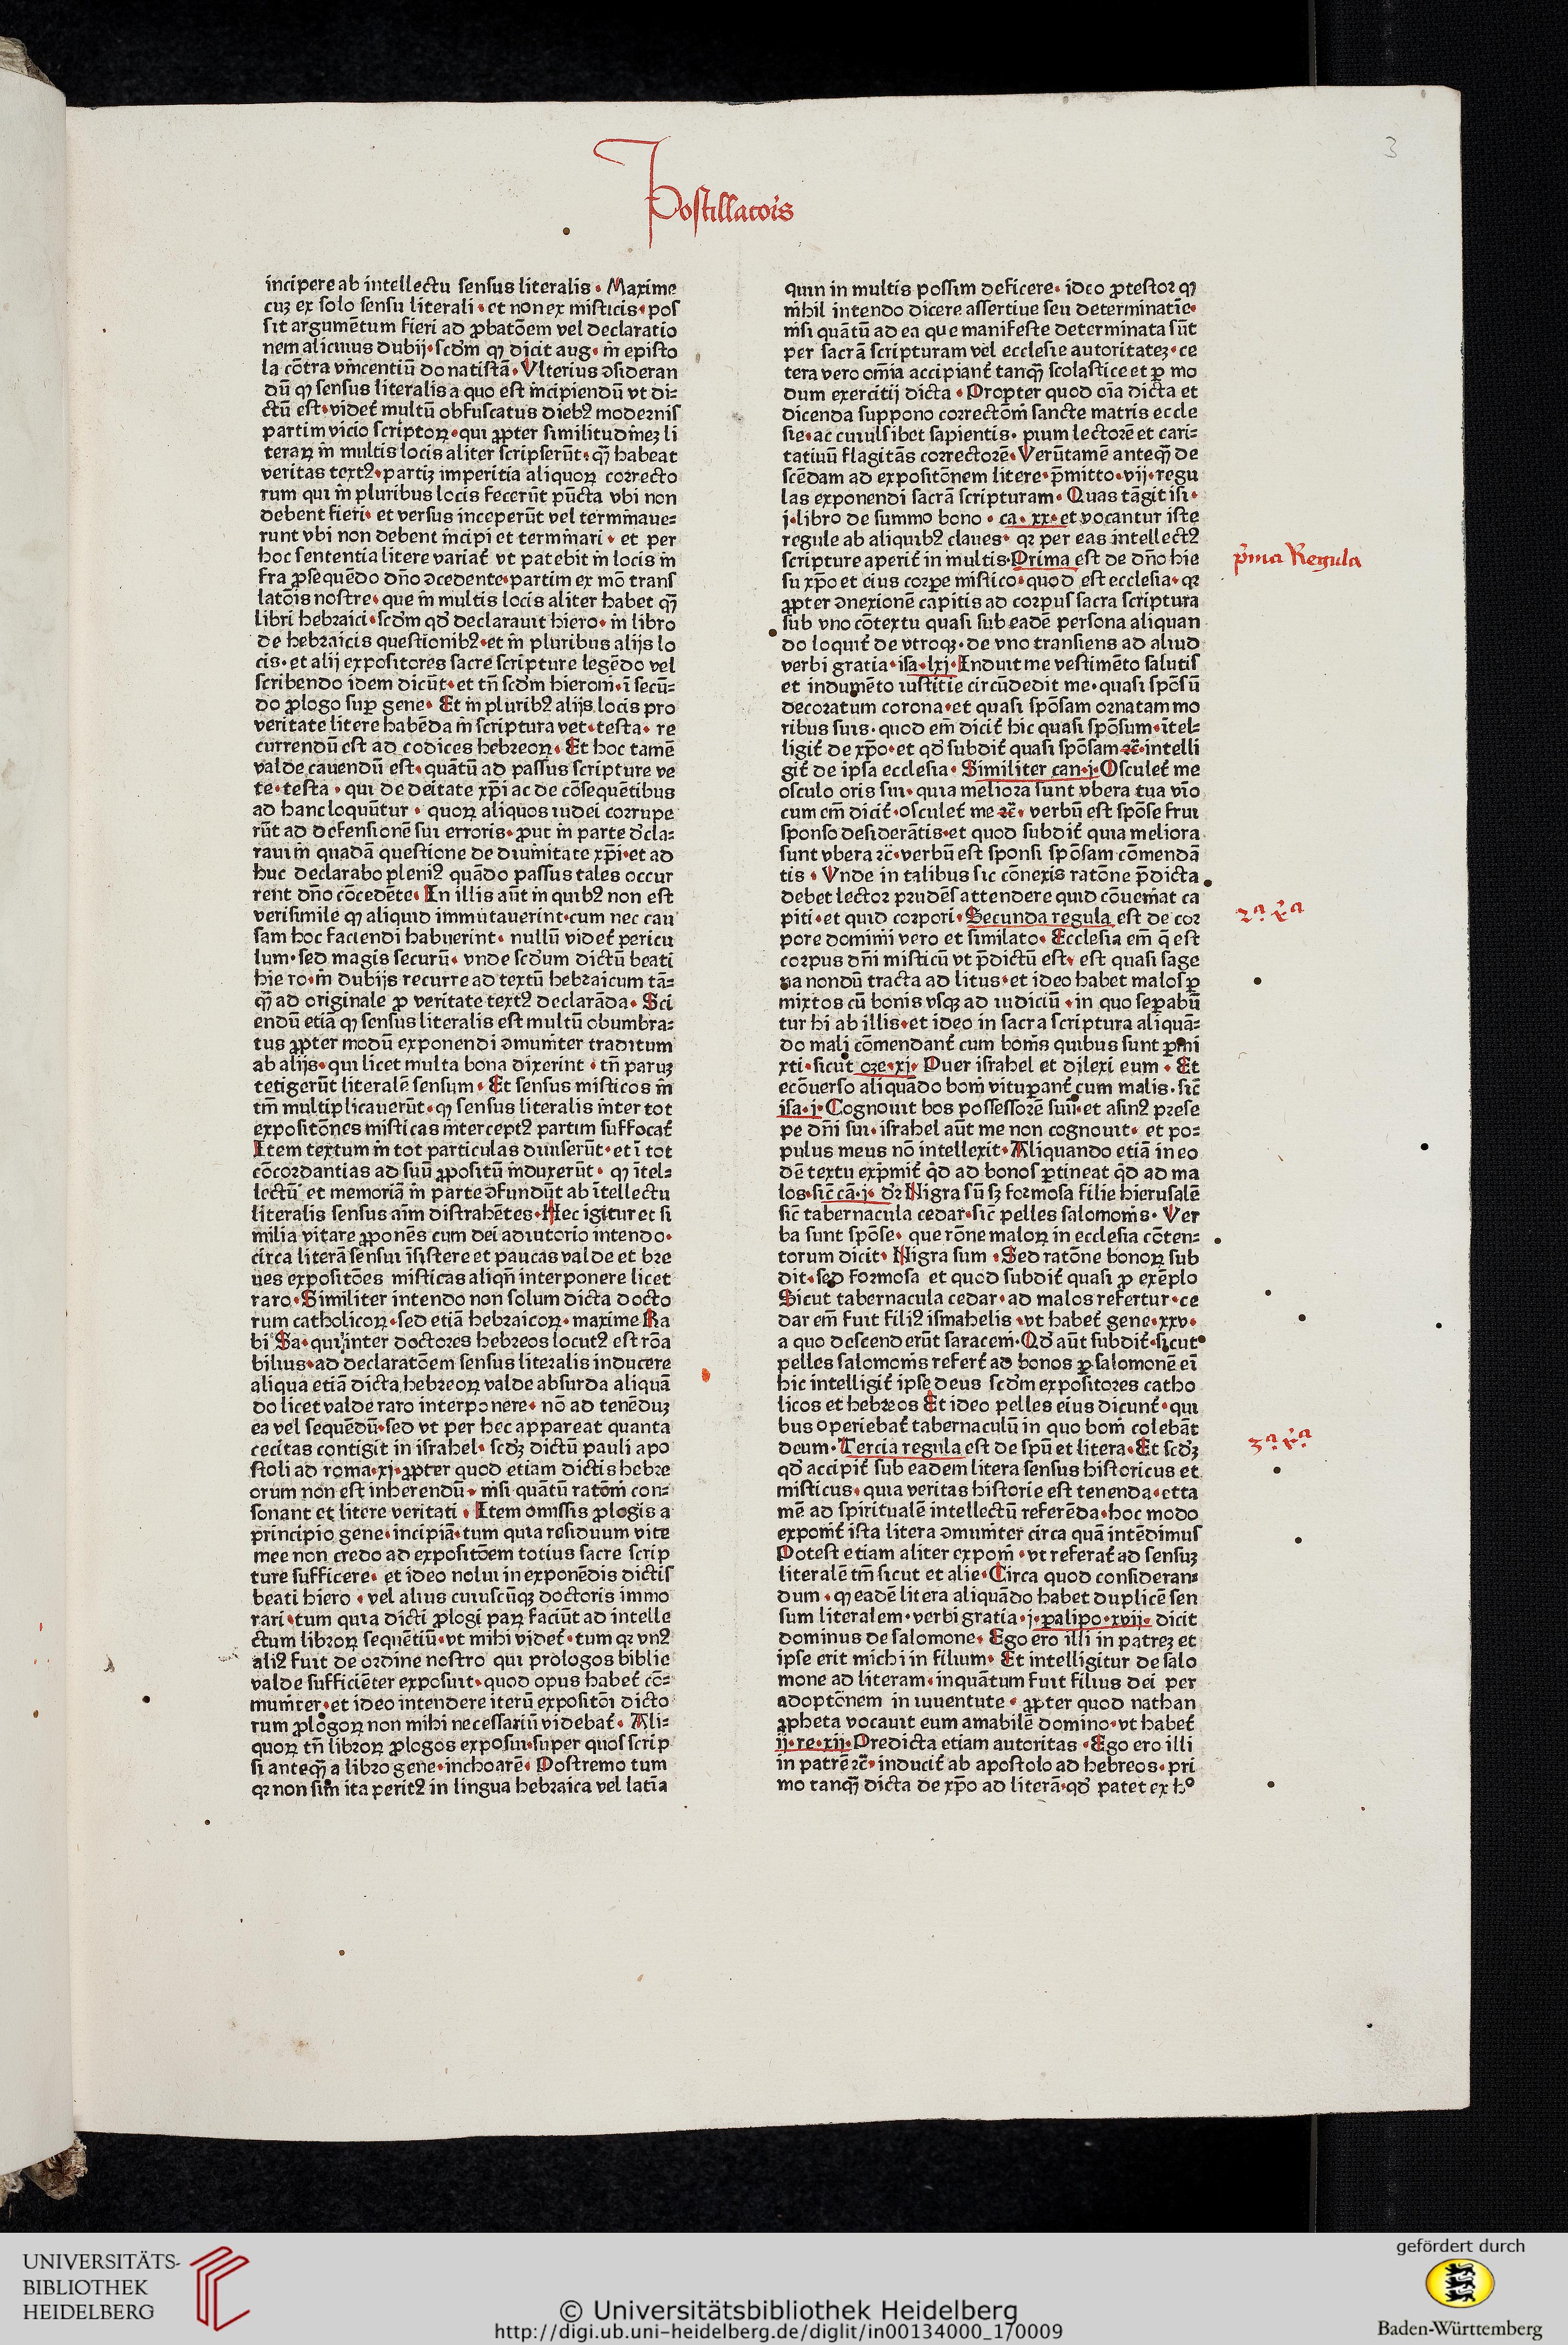 3
Postillatois
incipere ab intellectu sensus literalis. Maxime
cuʒ ex solo sensu literali. et non ex misticis. pos
sit argumētum fieri ad ꝓbatōem vel declaratio
nem alicuius dubij. scd̄m ꝙ dicit aug. in episto
la cōtra vincentiū donatistā. Vlterius ↄsideran
dū ꝙ sensus literalis a quo est incipiendū vt di⸗
ctū est. videt᷑ multū obfuscatus diebꝰ modernis
partim vicio scriptoꝝ. qui ꝓpter similitudineʒ li
teraꝝ in multis locis aliter scripserūt. qꝫ̄ habeat
veritas textꝰ. partiʒ imperitia aliquoꝝ correcto
rum qui in pluribus locis fecerūt pūcta vbi non
debent fieri. et versus inceperūt vel terminaue⸗
runt vbi non debent incipi et terminari. et per
hoc sententia litere variat᷑ vt patebit in locis in
fra ꝓsequēdo dn̄o ↄcedente. partim ex mō trans
latōis nostre. que in multis locis aliter habet qꝫ̄
libri hebraici. scd̄m qd̄ declarauit hiero. in libro
de hebraicis questionibꝰ. et in pluribus alijs lo
cis. et alij expositores sacre scripture legēdo vel
scribendo idem dicūt. et tn̄ scd̄m hieroni. ī secū⸗
do ꝓlogo suꝑ gene. Et in pluribꝰ alijs locis pro
veritate litere habēda in scriptura vet. testa. re
currendū est ad codices hebreoꝝ. Et hoc tamē
valde cauendū est. quātū ad passus scripture ve
te. testa. qui de deitate xp̄i ac de cōsequētibus
ad hanc loquūtur. quoꝝ aliquos iudei corrupe
rūt ad defensionē sui erroris. ꝓut in parte d̓cla⸗
raui in quadā questione de diuinitate xp̄i. et ad
huc declarabo pleniꝰ quādo passus tales occur
rent dn̄o cōcedēte. In illis aūt in quibꝰ non est
verisimile ꝙ aliquid immutauerint. cum nec cau
sam hoc faciendi habuerint. nullū videt᷑ pericu
lum. sed magis securū. vnde scd̄um dictū beati
hiero. in dubijs recurre ad textū hebraicum tā⸗
qꝫ̄ ad originale ꝓ veritate textꝰ declarāda. Sci
endū etiā ꝙ sensus literalis est multū obumbra⸗
tus ꝓpter modū exponendi ↄmuniter traditum
ab alijs. qui licet multa bona dixerint. tn̄ paruʒ
tetigerūt literalē sensum. Et sensus misticos in
tm̄ multiplicauerūt. ꝙ sensus literalis inter tot
expositōnes misticas interceptꝰ partim suffocat᷑
Item textum in tot particulas diuiserūt. et ī tot
cōcordantias ad suū ꝓpositū induxerūt. ꝙ ītel⸗
lectū et memoriā in parte ↄfundūt ab ītellectu
literalis sensus aīm distrahētes. Hec igitur et si
milia vitare ꝓponēs cum dei adiutorio intendo.
circa literā sensui īsistere et paucas valde et bre
ues expositōes misticas aliqn̄ interponere licet
raro. Similiter intendo non solum dicta docto
rum catholicoꝝ. sed etiā hebraicoꝝ. maxime Ra
bi Sa. qui inter doctores hebreos locutꝰ est rōa
bilius. ad declaratōem sensus literalis inducere
aliqua etiā dicta hebreoꝝ valde absurda aliquā
do licet valde raro interponere. nō ad tenēduʒ
ea vel sequēdū. sed vt per hec appareat quanta
cecitas contigit in israhel. scd̓ʒ dictū pauli apo
stoli ad roma. xj. ꝓpter quod etiam dictis hebre
orum non est inherendū. nisi quātū ratōni con⸗
sonant et litere veritati. Item omissis ꝓlogis a
principio gene. incipiā. tum quia residuum vite
mee non credo ad expositōem totius sacre scrip
ture sufficere. et ideo nolui in exponēdis dictis
beati hiero. vel alius cuiuscūqꝫ doctoris immo
rari. tum quia dicti ꝓlogi paꝝ faciūt ad intelle
ctum libroꝝ sequētiū. vt mihi videt᷑. tum qꝛ vnꝰ
aliꝰ fuit de ordine nostro qui prologos biblie
valde sufficiēter exposuit. quod opus habet᷑ cō⸗
muniter. et ideo intendere iterū expositōi dicto
rum ꝓlogoꝝ non mihi necessariū videbat᷑. Ali⸗
quoꝝ tn̄ libroꝝ ꝓlogos exposui. super quos scrip
si anteqꝫ̄ a libro gene. inchoarē. Postremo tum
qꝛ non sim ita peritꝰ in lingua hebraica vel latīa
quin in multis possim deficere. ideo ꝓtestor ꝙ
nihil intendo dicere assertiue seu determinatīe.
nisi quātū ad ea que manifeste determinata sūt
per sacrā scripturam vel ecclesie autoritateʒ. ce
tera vero om̄ia accipiant᷑ tanqꝫ̄ scolastice et ꝑ mo
dum exercitij dicta. Propter quod oīa dicta et
dicenda suppono correctōni sancte matris eccle
sie. ac cuiulsibet sapientis. pium lectorē et cari⸗
tatiuū flagitās correctorē. Verūtamē anteqꝫ̄ de
scēdam ad expositōnem litere. p̄mitto. vij. regu
las exponendi sacrā scripturam. Quas tāgit isi.
j. libro de summo bono. ca. xx. et vocantur iste
regule ab aliquibꝰ claues. qꝛ per eas intellectꝰ
scripture aperit᷑ in multis. Prima est de dn̄o hie
su xp̄o et eius corꝑe mistico. quod est ecclesia. qꝛ
ꝓpter ↄnexionē capitis ad corpus sacra scriptura
sub vno cōtextu quasi sub eadē persona aliquan
do loquit᷑ de vtroqꝫ. de vno transiens ad aliud
verbi gratia. isa. lxj. Induit me vestimēto salutis
et indumēto iustitie circūdedit me. quasi spōsū
decoratum corona. et quasi spōsam ornatam mo
nilibus suis. quod em̄ dicit᷑ hic quasi spōsum. ītel⸗
ligit᷑ de xp̄o. et qd̄ subdit᷑ quasi spōsam ⁊c̄. intelli
git᷑ de ipsa ecclesia. Similiter can. j. Osculet᷑ me
osculo oris sui. quia meliora sunt vbera tua vīo
cum em̄ dicit᷑. osculet᷑ me ⁊c̄. verbū est spōse frui
sponso desiderātis. et quod subdit᷑ quia meliora
sunt vbera ⁊c̄. verbū est sponsi spōsam cōmendā
tis. Vnde in talibus sic cōnexis ratōne p̄dicta
debet lector prudēs attendere quid cōueniat ca
piti. et quid corpori. Secunda regula est de cor
pore domini vero et similato. Ecclesia em̄ q̄ est
corpus dn̄i misticū vt p̄dictū est. est quasi sage
na nondū tracta ad litus. et ideo habet malos ꝑ
mixtos cū bonis vsqꝫ ad iudiciū. in quo seꝑabū
tur hi ab illis. et ideo in sacra scriptura aliquā⸗
do mali cōmendant᷑ cum bonis quibus sunt ꝑmi
xti. sicut oze. xj. Puer israhel et dilexi eum. Et
ecōuerso aliquādo boni vituꝑant᷑ cum malis. sic̄
isa. j. Cognouit bos possessorē suū. et asinꝰ prese
pe dn̄i sui. israhel aūt me non cognouit. et po⸗
pulus meus nō intellexit. Aliquando etiā in eo
dē textu exp̄mit᷑ qd̓ ad bonos ꝑtineat qd̓ ad ma
los. sic̄ cā. j. d̓r Nigra sū sꝫ formosa filie hierusalē
sic̄ tabernacula cedar. sic̄ pelles salomonis. Ver
ba sunt spōse. que rōne maloꝝ in ecclesia cōten⸗
torum dicit. Nigra sum. Sed ratōne bonoꝝ sub
dit. sed formosa et quod subdit᷑ quasi ꝓ exēplo
Sicut tabernacula cedar. ad malos refertur. ce
dar em̄ fuit filiꝰ ismahelis. vt habet᷑ gene. xxv.
a quo descenderūt saraceni. Qd̄ aūt subdit᷑. sicut
pelles salomonis refert᷑ ad bonos ꝑ salomonē eī
hic intelligit᷑ ipse deus scd̄m expositores catho
licos et hebreos Et ideo pelles eius dicunt᷑. qui
bus operiebat᷑ tabernaculū in quo boni colebāt
deum. Tercia regula est de spū et litera. Et scd̓ʒ
qd̄ accipit᷑ sub eadem litera sensus historicus et
misticus. quia veritas historie est tenenda. et ta
mē ad spiritualē intellectū referēda. hoc modo
exponit᷑ ista litera ↄmuniter circa quā intēdimus
Potest etiam aliter exponi. vt referat᷑ ad sensuʒ
literalē tm̄ sicut et alie. Circa quod consideran⸗
dum. ꝙ eadē litera aliquādo habet duplicē sen
sum literalem. verbi gratia. j. palipo. xvij. dicit
dominus de salomone. Ego ero illi in patreʒ et
ipse erit michi in filium. Et intelligitur de salo
mone ad literam. inquātum fuit filius dei per
adoptōnem in iuuentute. ꝓpter quod nathan
ꝓpheta vocauit eum amabilē domino. vt habet᷑
ij. re. xij. Predicta etiam autoritas. Ego ero illi
in patrē ⁊c̄. inducit᷑ ab apostolo ad hebreos. pri
mo tanqꝫ̄ dicta de xp̄o ad literā. qd̄ patet ex hº
p̓ma Regula
2ᵃ rᵃ
3ᵃ rᵃ
UNIVERSITÄTS-
BIBLIOTHEK
HEIDELBERG
© Universitätsbibliothek Heidelberg
http://digi.ub.uni-heidelberg.de/diglit/in00134000_170009
gefördert durch
Baden-Württemberg